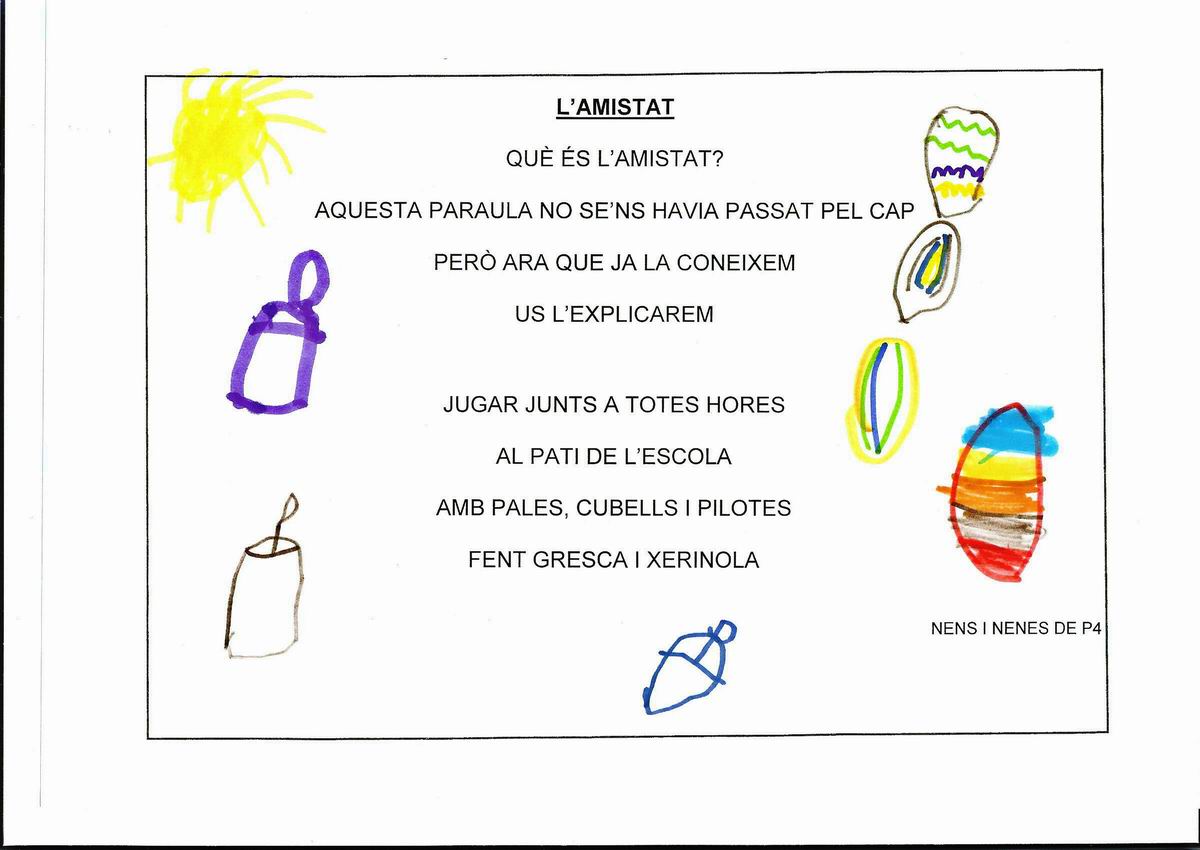 L'AMISTAT
QUÈ ÉS L'AMISTAT?
AQUESTA PARAULA NO SE'NS HAVIA PASSAT PEL CAP
PERÒ ARA QUE JA LA CONEIXEM
US L'EXPLICAREM
JUGAR JUNTS A TOTES HORES
AL PATI DE L'ESCOLA
AMB PALES, CUBELLS I PILOTES
FENT GRESCA I XERINOLA
NENS I NENES DE P4